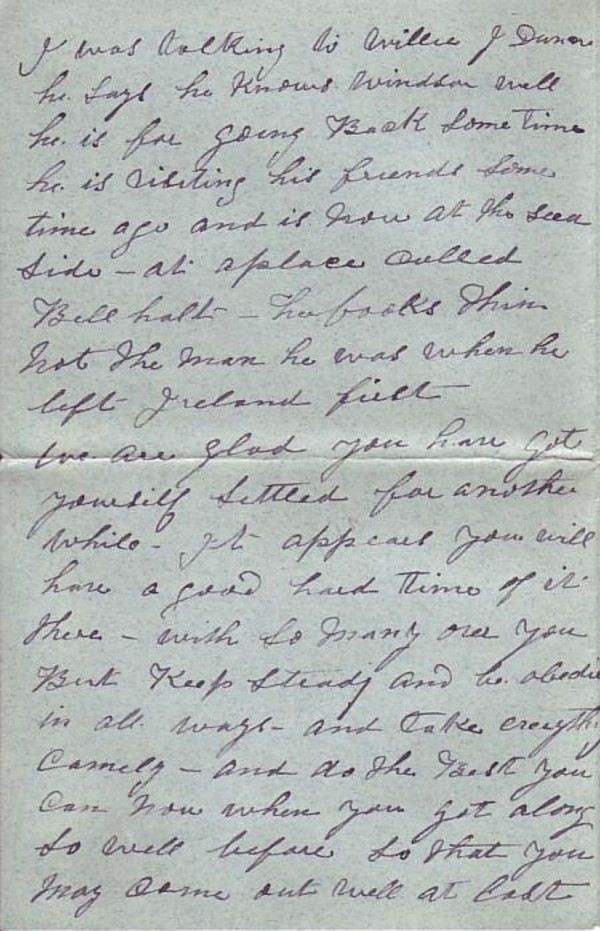 I was talking to Willie J
he says he knows Windsor well
he is for going Back sometime
he is visiting his friends some
time ago and is now at the sea
side – at aplace Called
Bell halt – he looks thin
not the man he was when he
left Ireland first
we are glad you have got
yourself settled for another
while – It appears you will
have a good hard time of it
there – with so many over you
But Keep steady and be obedie
in all ways – and take everyth
Camely – and do the Best you
Can now when you got along
so well before so that you
may Come out well at last